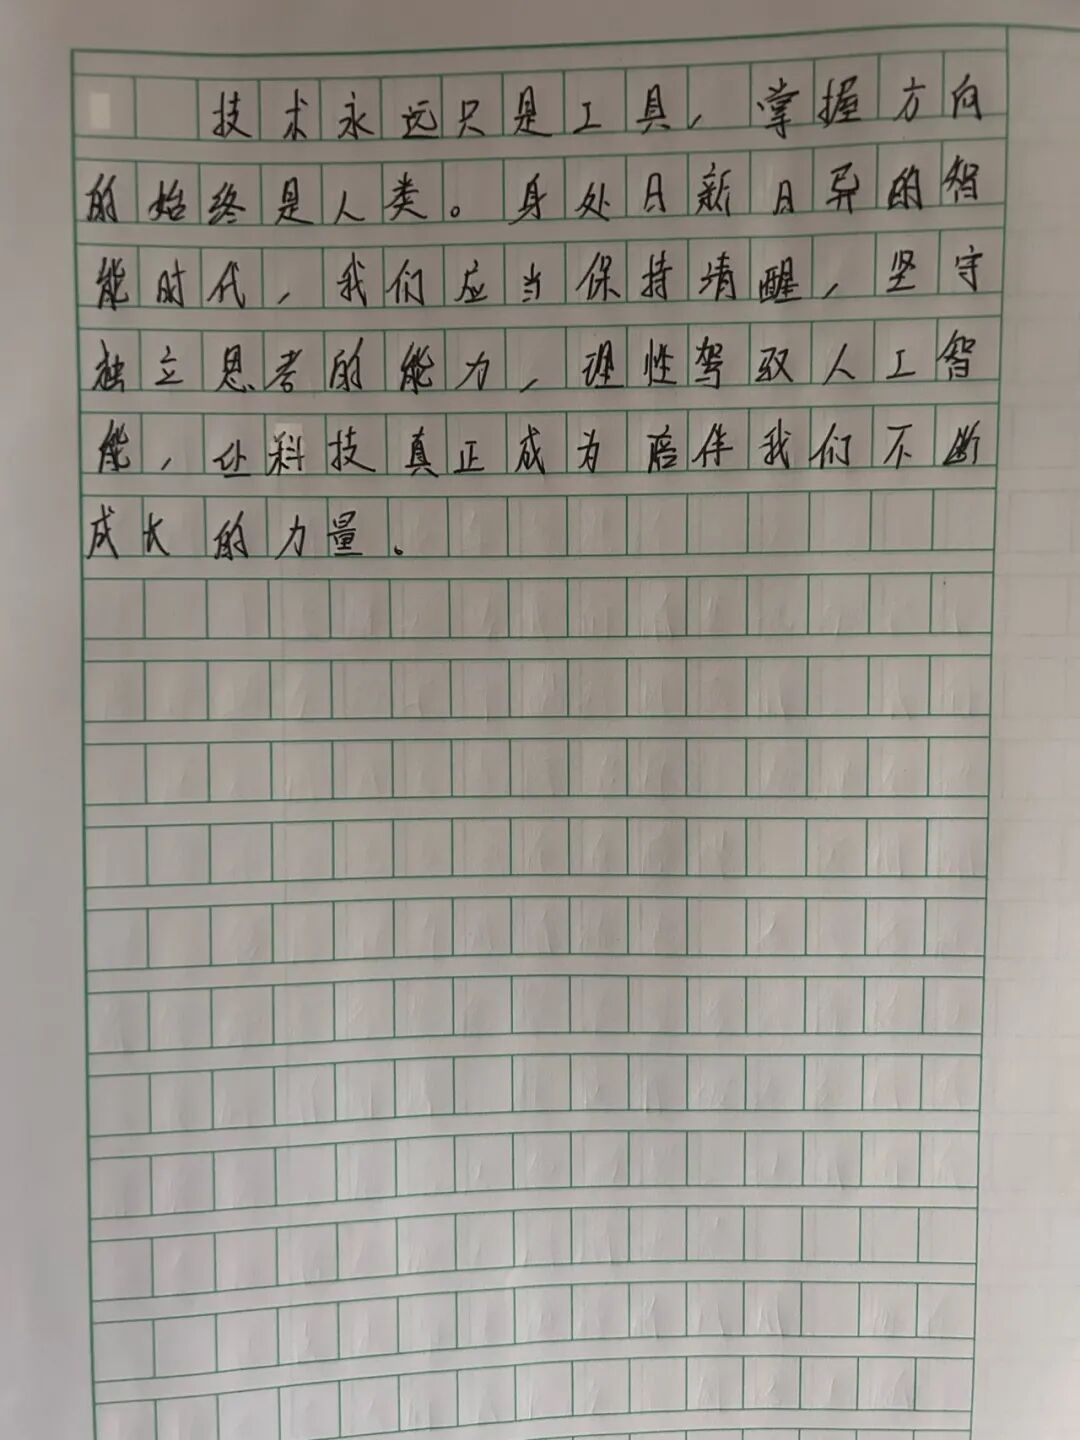 技术永远只是工具，掌握方向
的始终是人类。身处日新月异的智
能时代，我们应当保持清醒，坚守
独立思考的能力，理性驾驭人工智
能，让科技真正成为陪伴我们不断
成长的力量。